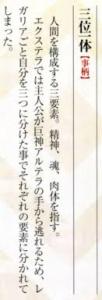 三位一体【事柄】
人間を構成する三要素。精神、魂、肉体を指す。
エクステラでは主人公が巨神アルテラの手から逃れるため、レ
ガリアごと自分を三つに分けた事でそれぞれの要素に分かれて
しまった。